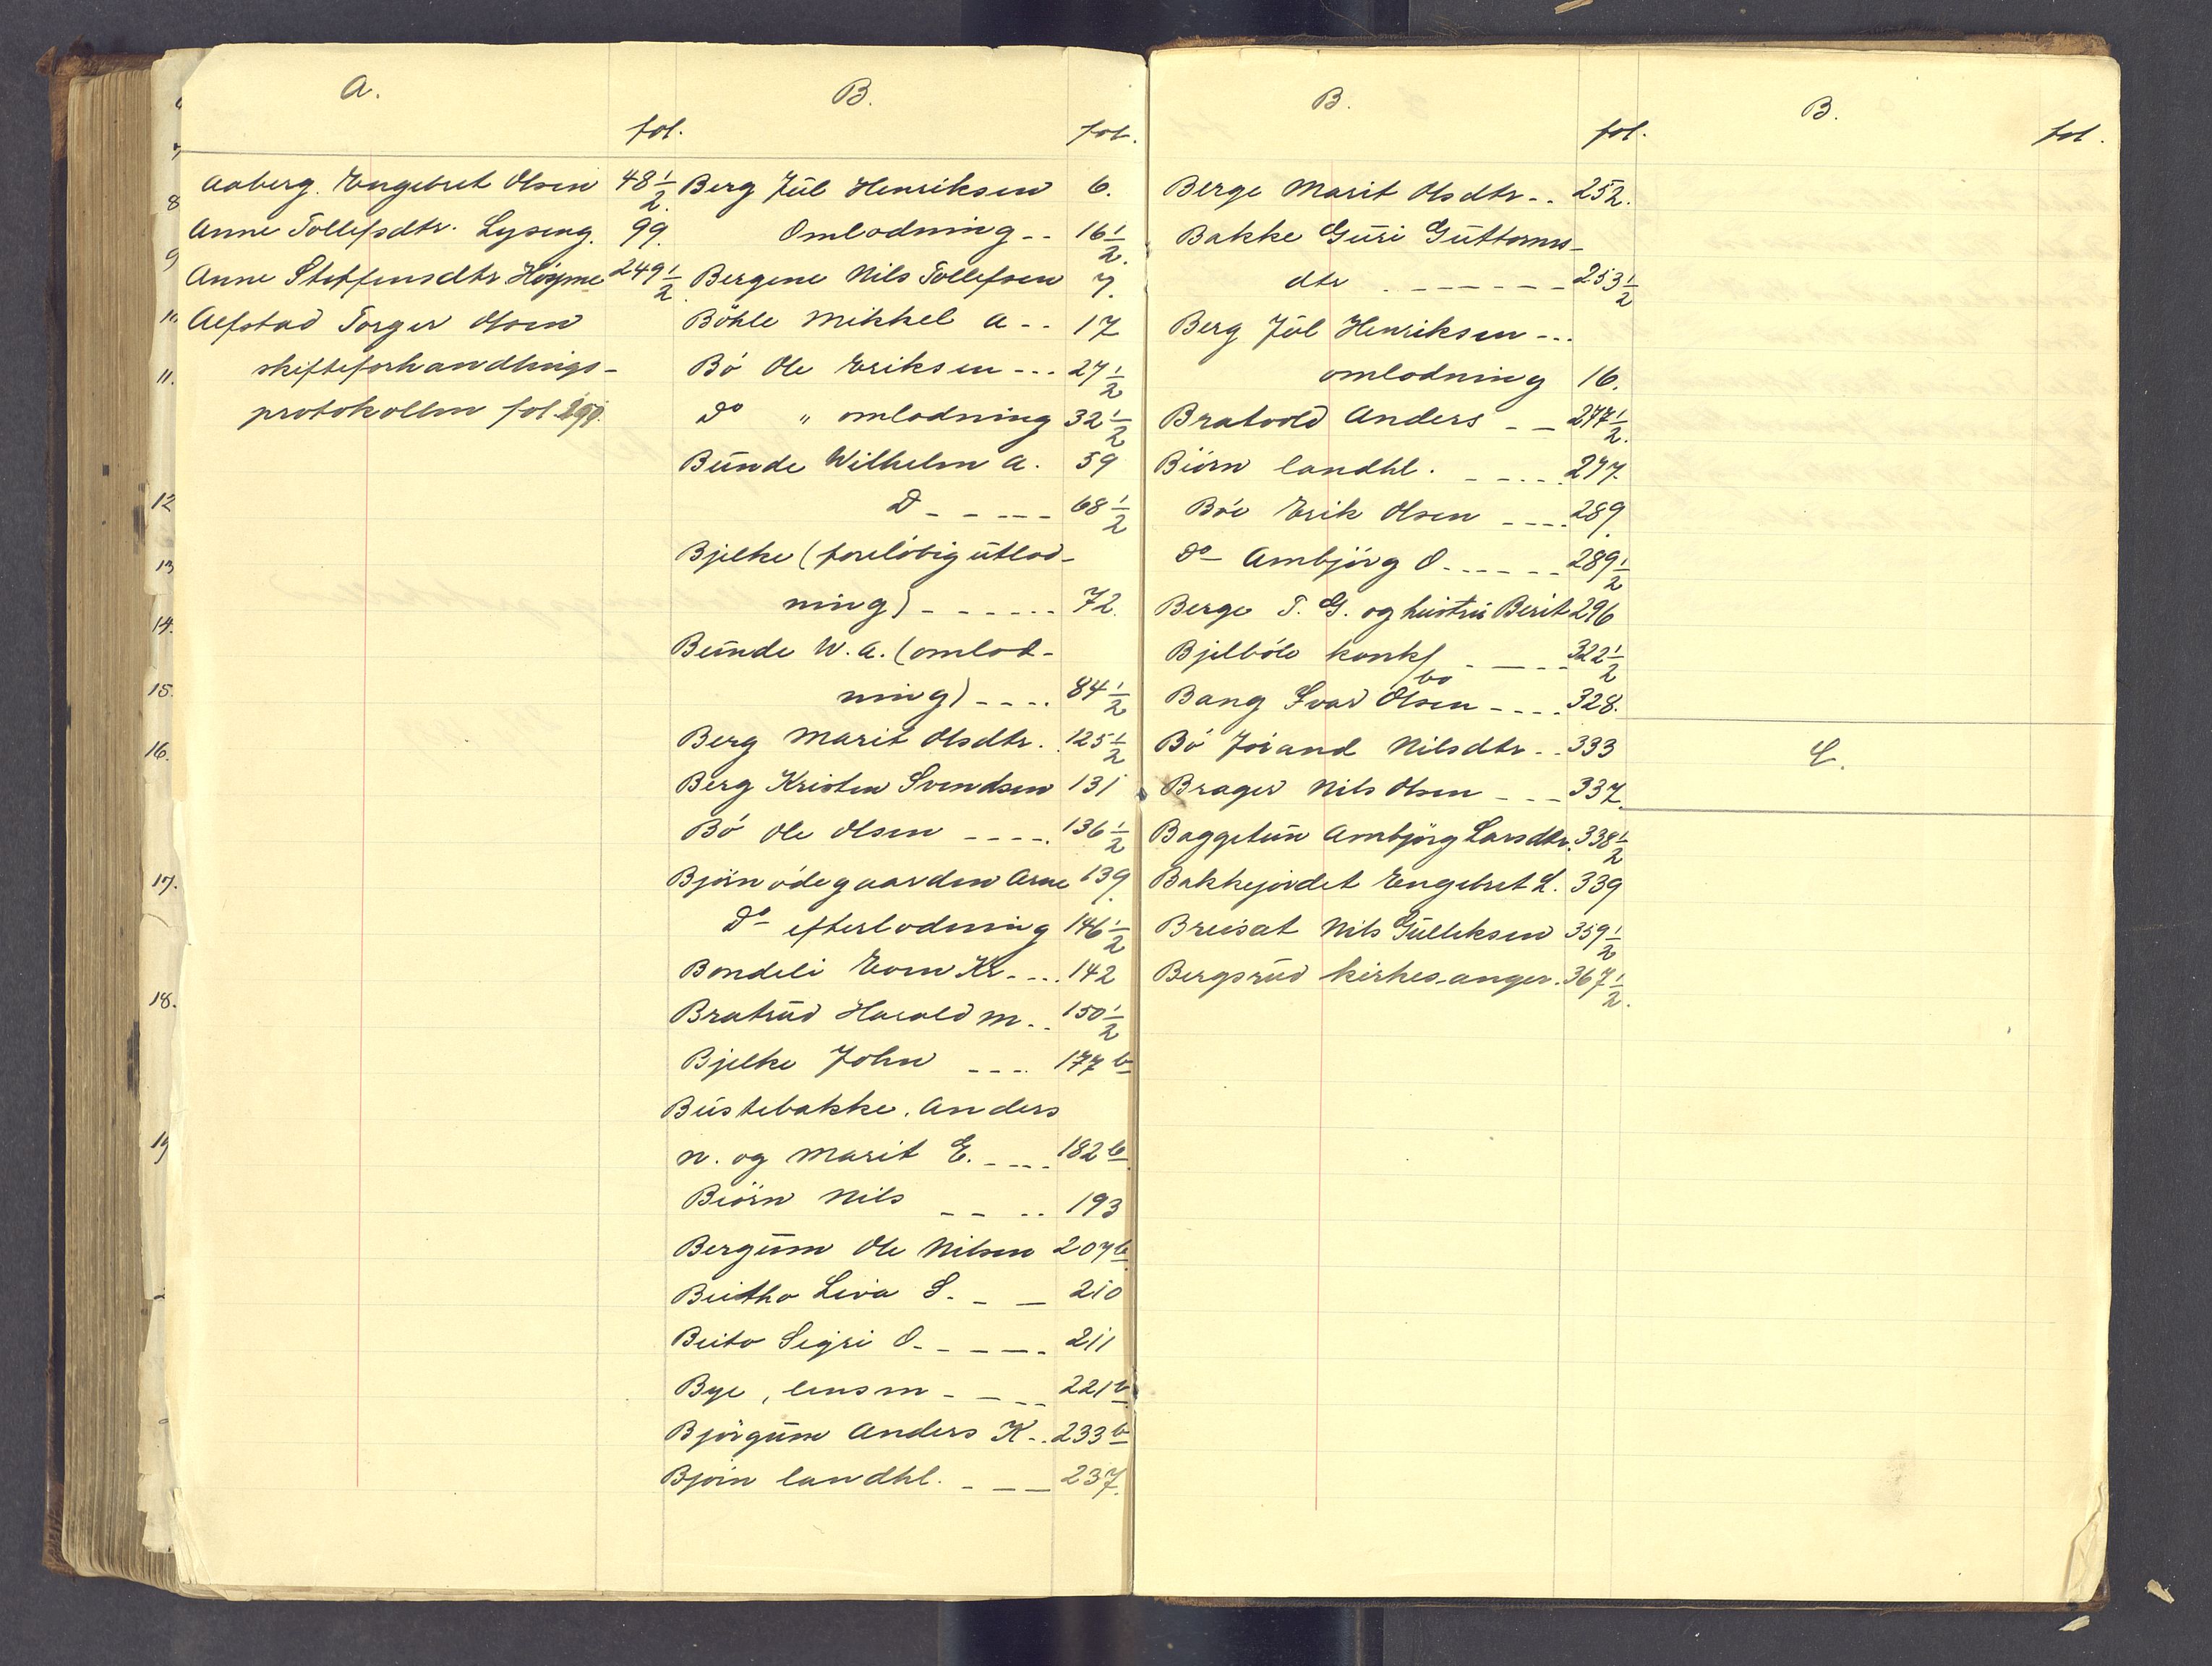 A.
fol.
Aaberg. Engebret Olsen 48 1/2.
Anne Tollefsdtr. Lyseng. 99.
Anne Steffensdtr Höyme 249 1/2.
Alfstad Torger Olsen
skifteforhandlings-
protokollen fol 290.
B.
fol.
Berg Jül Henriksen 6.
Omlodning -- 16 1/2.
Bergene Nils Tollefsen 7.
Böhle Mikkel A -- 17
Bö Ole Eriksen --- 27 1/2
Do " omlodning 32 1/2
Bünde Wilhelm A. 59
D ----- 68 1/2
Bjelke (foreløbig ütlod-
ning) ------ 72.
Bünde W. A. (omlod-
ning) ---- 84 1/2
Berg Marit Olsdtr. 125 1/2
Berg Kristen Svendsen 131
Bö Ole Olsen ----. 136 1/2
Björnödegaarden Arne 139.
Do efterlodning 146 1/2
Bondeli Even Kr. --- 142
Bratrüd Harald M. -- 150 1/2
Bjelke John ---- 177 b
Büstebakke. Anders
N. og Marit E. ---- 182 b
Biörn Nils ---- 193
Bergüm Ole Nilsen 207 b
Beitho Livia S. -- 210
Beito Sigri O. ----- 211
Bye, lensm ---- 221 b
Björgüm Anders K -- 233 b
Björn landhl. --- 237.
B.
fol.
Berge Marit Olsdtr -- 252.
Bakke Güri Güttorms-
dtr ------- 253 1/2
Berg Jül Henriksen ---
omlodning 16.
Bratvold Anders -- 277 1/2.
Biörn landhl. ----- 277.
Böe Erik Olsen ---- 289.
Do Ambjörg O. ----- 289 1/2
Berge T. G. og hüstrü Berit 296
Bjelböle konk/bo ---- 322 1/2
Bang Ivar Olsen ---- 328.
Bö Jörand Nilsdtr -- 333
Brager Nils Olsen --- 337.
Baggetün Ambjörg Larsdtr. 338 1/2
Bakkejordet Engebret L. 339
Breisat Nils Gülleksen 359 1/2
Bergsrüd kirkesanger. 367 1/2.
B.
fol.
C.
8
9
10
11.
12
13
14.
15.
16.
17.
18.
19